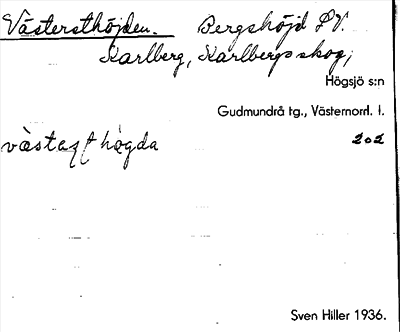 Västersthöjden. Bergshöjd SV.
Karlberg, Karlbergsskog,
Högsjö s:n
Gudmundrå tg., Västernorrl. l.
202
Sven Hiller 1936.